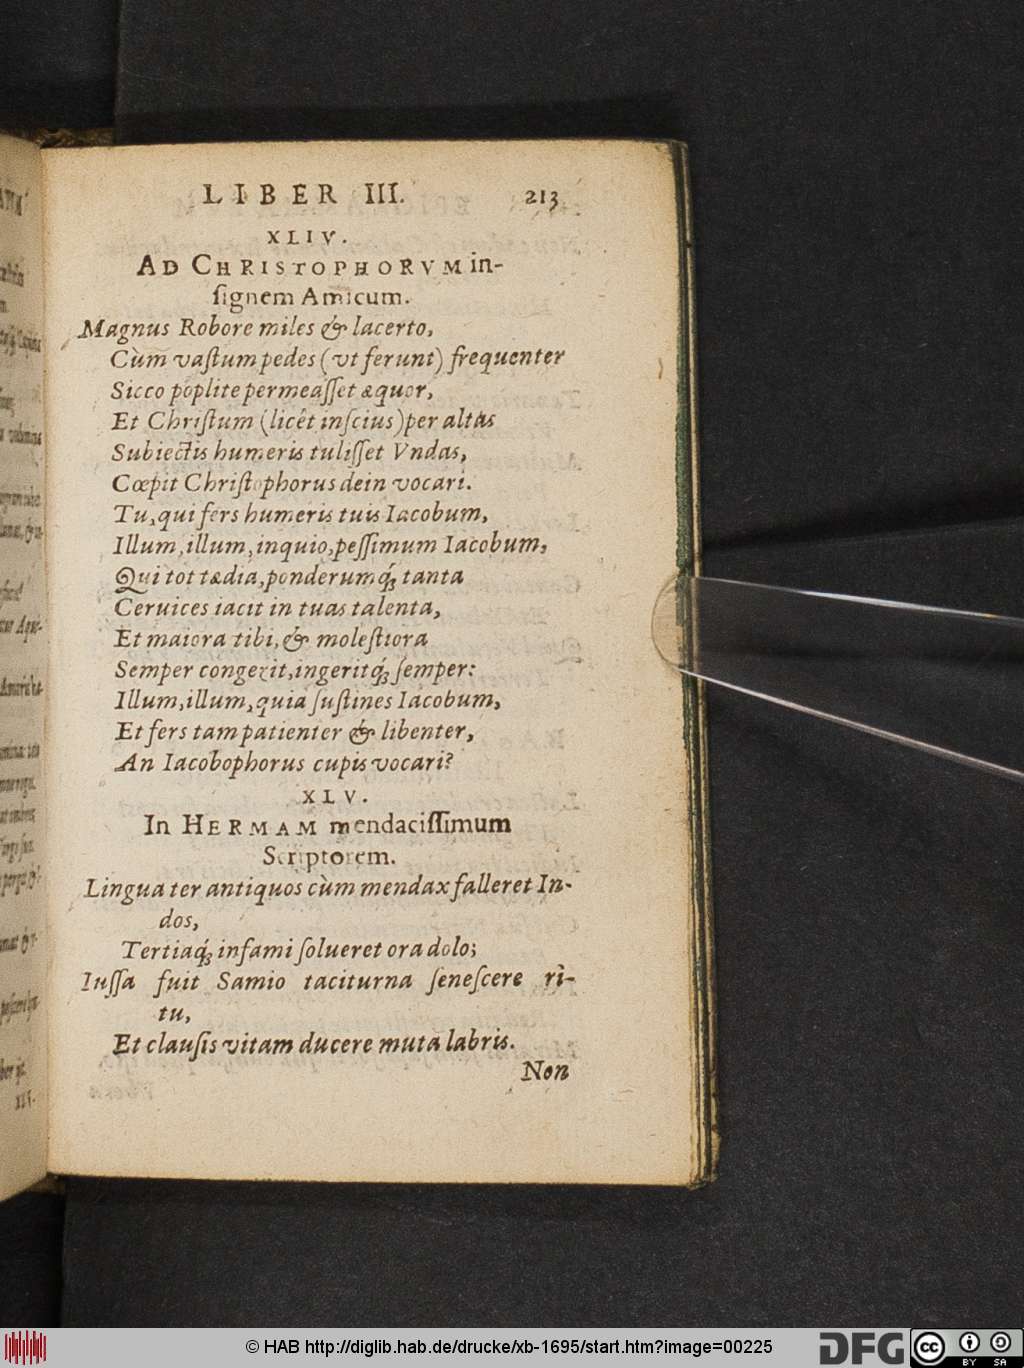 LIBER III. 213
XLIV.
AD CHRISTOPHORVM in-
ſignem Amicum.
Magnus Robore miles & lacerto,
Cùm vaſtum pedes (vt ferunt) frequenter
Sicco poplite permeaſſet æquor,
Et Chriſtum (licêt inſcius) per altas
Subiectis humeris tuliſſet Vndas,
Cœpit Chriſtophorus dein vocari.
Tu, qui fers humeris tuis Iacobum,
Illum, illum, inquio, peſſimum Iacobum,
Qui tot tædia, ponderumq́; tanta
Ceruices iacit in tuas talenta,
Et maiora tibi, & moleſtiora
Semper congerit, ingeritq́; ſemper:
Illum, illum, quia ſuſtines Iacobum,
Et fers tam patienter & libenter,
An Iacobophorus cupis vocari?
XLV.
In HERMAM mendaciſſimum
Scriptorem.
Lingua ter antiquos cùm mendax falleret In-
dos,
Tertiaq́; infami ſolueret ora dolo;
Iuſſa fuit Samio taciturna ſeneſcere rì-
tu,
Et clauſis vitam ducere muta labris.
Non
© HAB http://diglib.hab.de/drucke/xb-1695/start.htm?image=00225
DFG
cc
BY SA